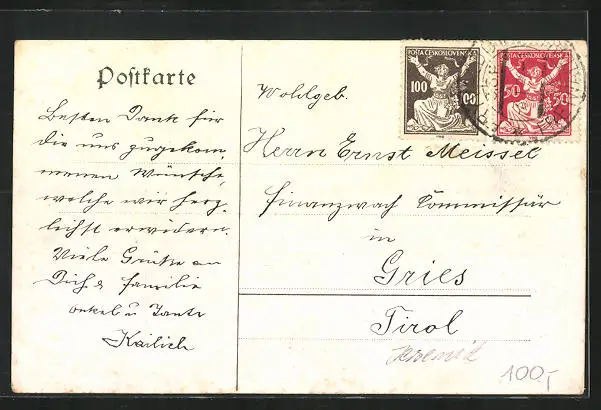 Postkarte
Besten Dank für
die uns zugekom-
menen Wünsche,
welche wir herz-
lichst erwidern.
Viele Grüße an
Dich & Familie
Onkel u Tante
POŠTA ČESKOSLOVENSKÁ
100
POŠTA ČESKOSLOVENSKÁ
50 50
Wohlgeb.
Herrn Ernst Meissel
Finanzwach Commissär
in
Gries
Tirol
100,-